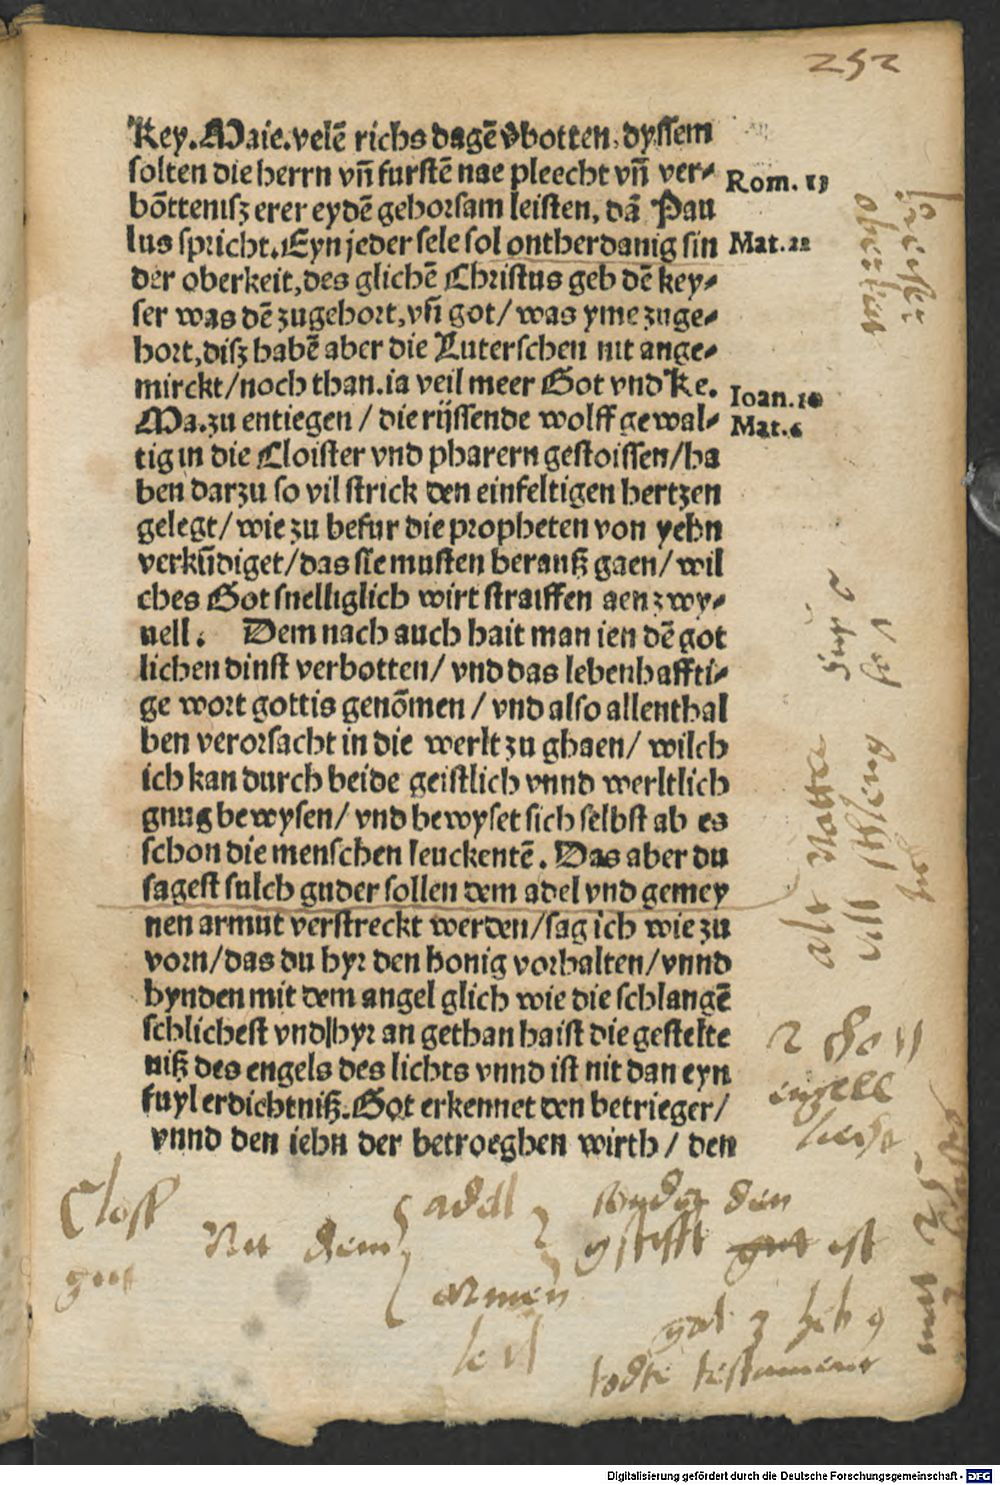 252
Key. Maie. velē richs dagē v̄botten, dyssem
solten die herrn vn̄ furstē nae pleecht vn̄ ver⸗
bōttenisz erer eydē gehorsam leisten, dā Pau
lus spricht. Eyn jeder sele sol ontherdanig sin
der oberkeit, des glichē Christus geb dē key⸗
ser was dē zugehort, vn̄ got/ was yme zuge⸗
hort, disz habē aber die Luterschen nit ange⸗
mirckt/ noch than. ia veil meer Got vnd Ke.
Ma. zu entiegen / die rijssende wolff gewal⸗
tig in die Cloister vnd pharern gestoissen/ ha
ben darzu so vil strick den einfeltigen hertzen
gelegt/ wie zu befur die propheten von yehn
verkūdiget/ das sie musten herauß gaen/ wil
ches Got snelliglich wirt straiffen aen zwy⸗
uell. Dem nach auch hait man ien dē got
lichen dinst verbotten/ vnd das lebenhaffti⸗
ge wort gottis genōmen / vnd also allenthal
ben verorsacht in die werlt zu ghaen/ wilch
ich kan durch beide geistlich vnnd werltlich
gnug bewysen/ vnd bewyset sich selbst ab es
schon die menschen leuckentē. Das aber du
sagest sulch guder sollen dem adel vnd gemey
nen armut verstreckt werden/ sag ich wie zu
vorn/ das du hyr den honig vorhalten/ vnnd
hynden mit dem angel glich wie die schlangē
schlichest vnd hyr an gethan haist die gestelte
niß des engels des lichts vnnd ist nit dan eyn
fuyl erdichtniß. Got erkennet den betrieger/
vnnd den iehn der betroeghen wirth / den
Rom. 13
Mat. 22
Ioan. 10
Mat. 6
oberkeit
alt
vill
2 cho 11
engell
liecht
Closs
gut
Nit dem
adell
armen
den
gstifft gut ist
todte testament
Digitalisierung gefördert durch die Deutsche Forschungsgemeinschaft - DFG